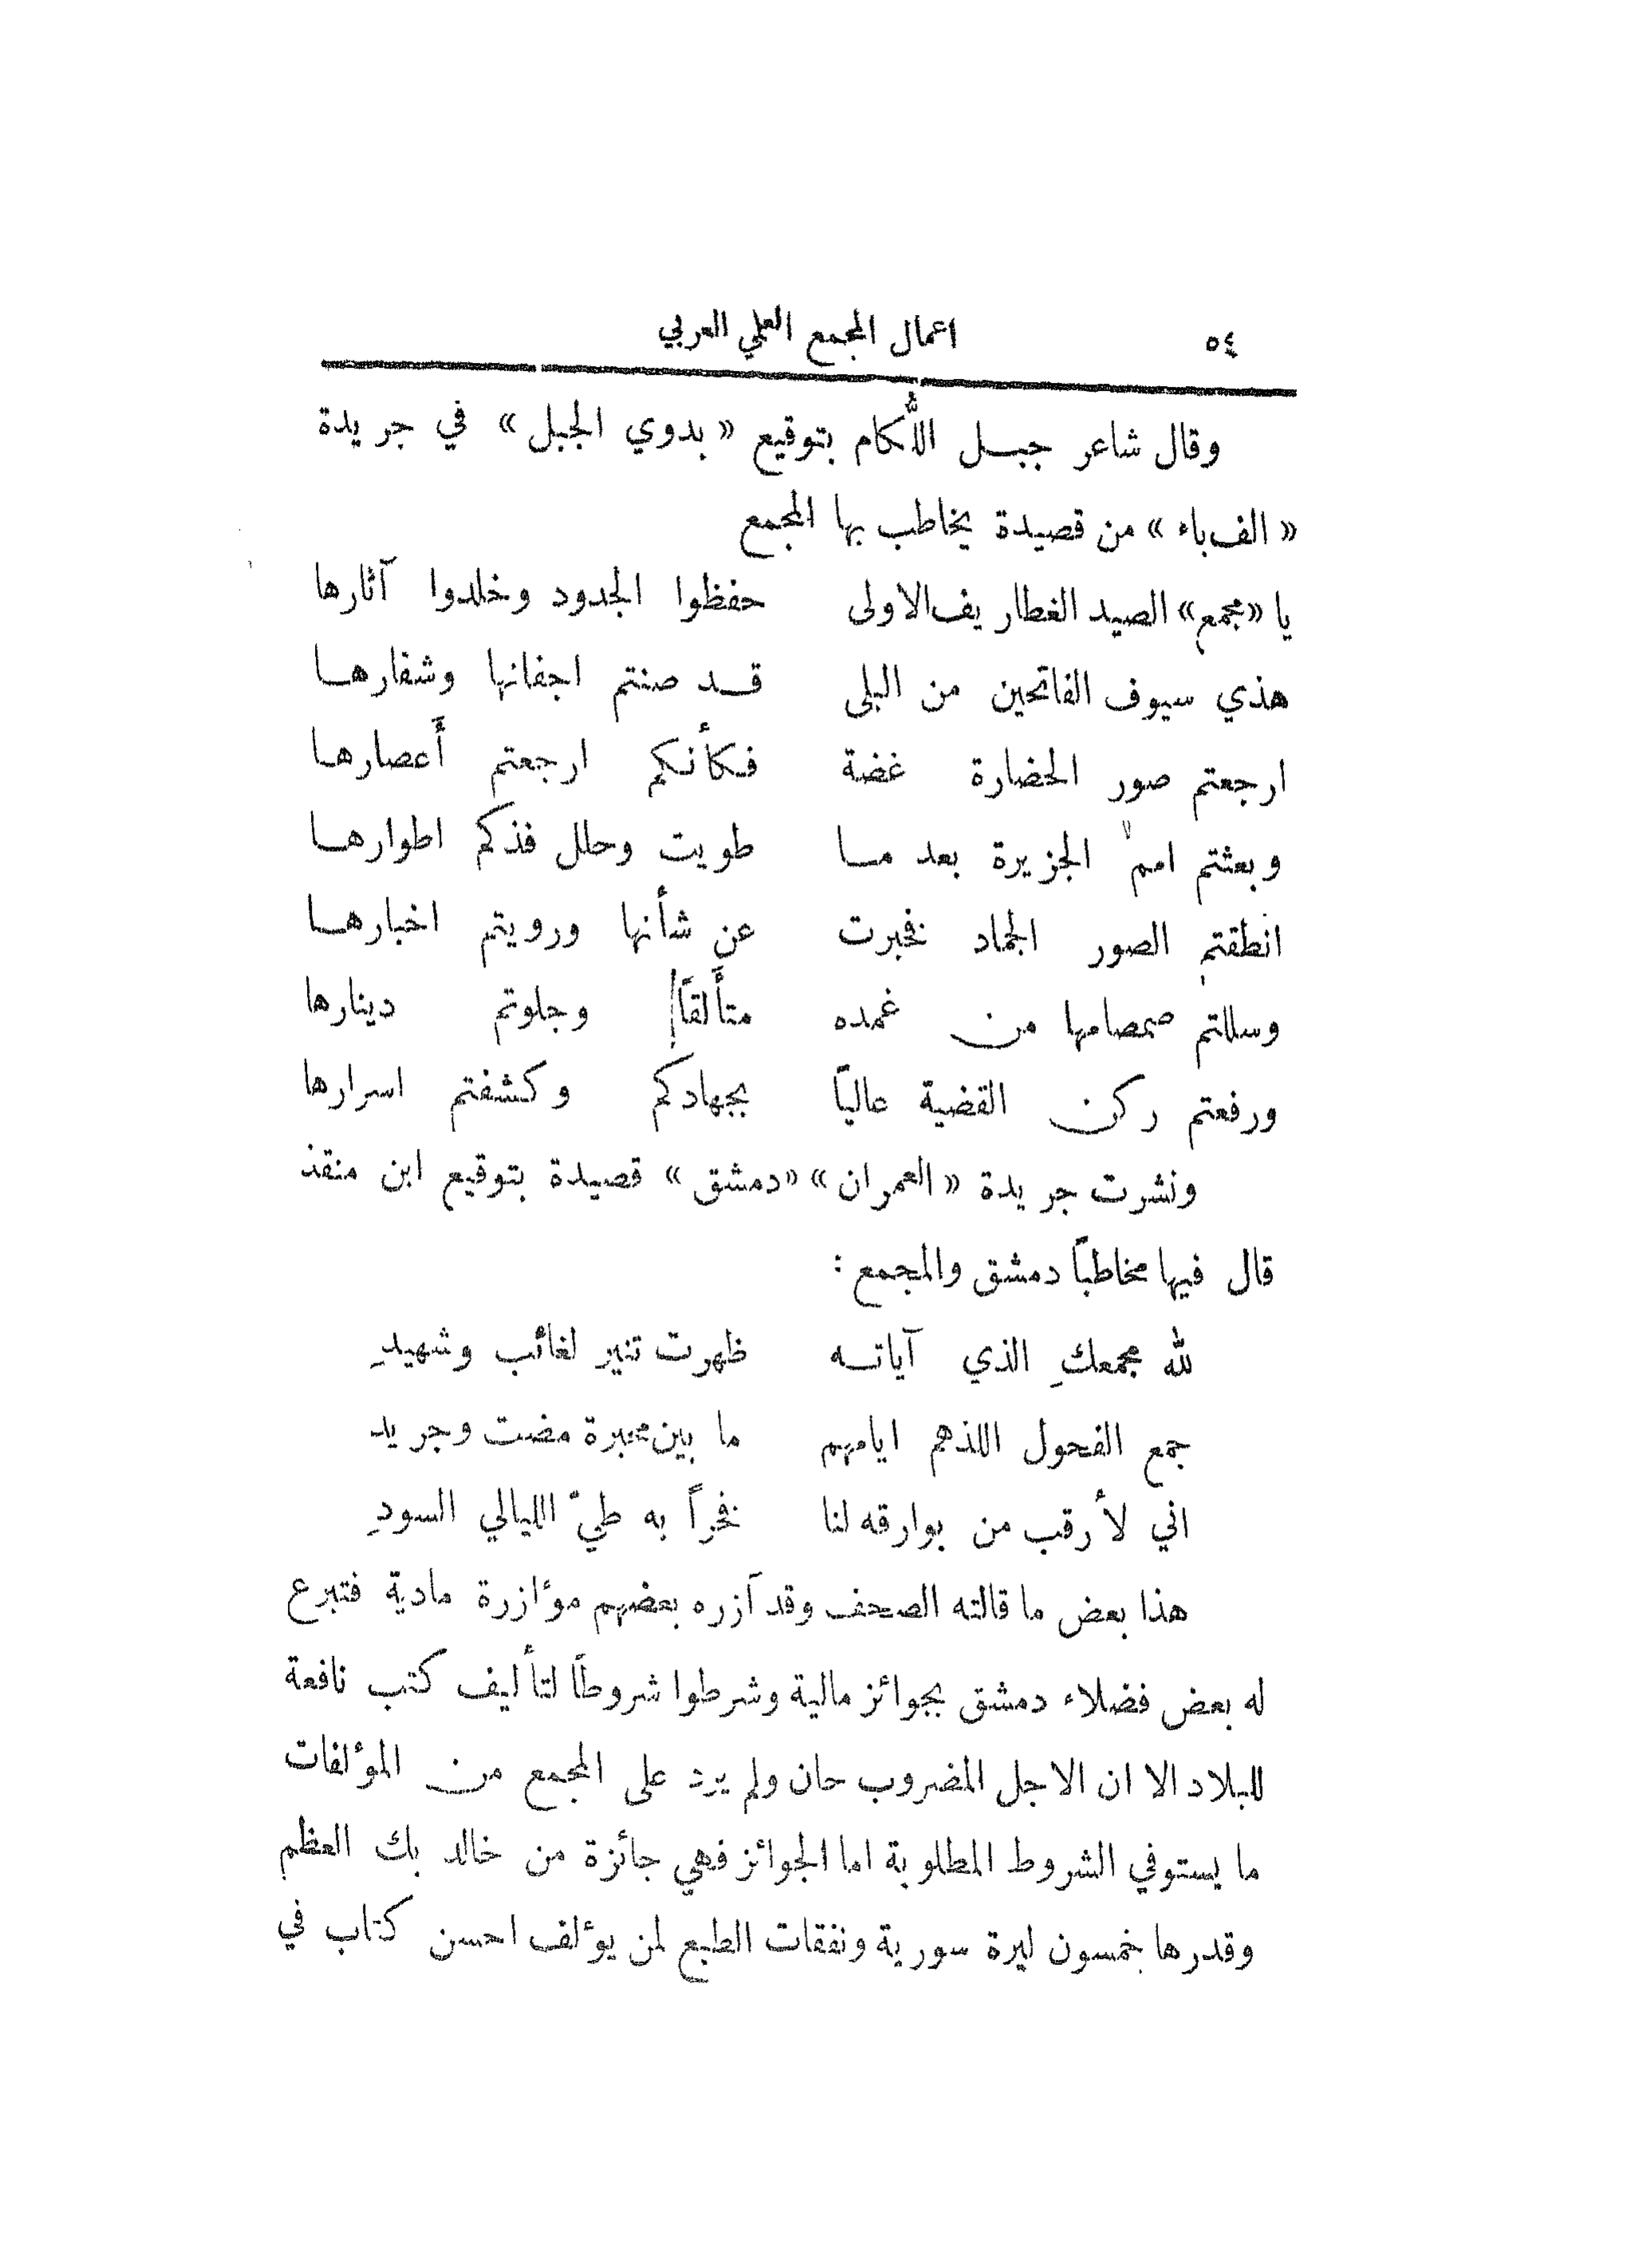 ٥٤ اعمال المجمع العلمي العربي
وقال شاعر جبل اللُّكام بتوقيع « بدوي الجبل » في جريدة
« الف باء » من قصيدة يخاطب بها المجمع
يا «مجمع» الصيد الغطاريف الاولى حفظوا الجدود وخلدوا آثارها
هذي سيوف الفاتحين من البلى قد صنتم اجفانها وشفارها
ارجعتم صور الحضارة غضة فكأنكم ارجعتم أعصارها
وبعثتم امم الجزيرة بعد ما طويت وحلل فذكم اطوارها
انطقتم الصور الجماد فخبرت عن شأنها ورويتم اخبارها
وسللتم صمصامها من غمده متألقاً وجلوتم دينارها
ورفعتم ركن القضية عالياً بجهادكم وكشفتم اسرارها
ونشرت جريدة « العمران » «دمشق » قصيدة بتوقيع ابن منقذ
قال فيها مخاطباً دمشق والمجمع :
لله مجمعكِ الذي آياته ظهرت تنير لغائب وشهيدِ
جمع الفحول اللذهم ايامهم ما بين محبرة مضت وجريد
اني لأرقب من بوارقه لنا فخراً به طيّ الليالي السودِ
هذا بعض ما قالته الصحف وقد آزره بعضهم مؤازرة مادية فتبرع
له بعض فضلاء دمشق بجوائز مالية وشرطوا شروطاً لتأليف كتب نافعة
للبلاد الا ان الاجل المضروب حان ولم يرد على المجمع من المؤلفات
ما يستوفي الشروط المطلوبة اما الجوائز فهي جائزة من خالد بك العظم
وقدرها خمسون ليرة سورية ونفقات الطبع لمن يؤلف احسن كتاب في